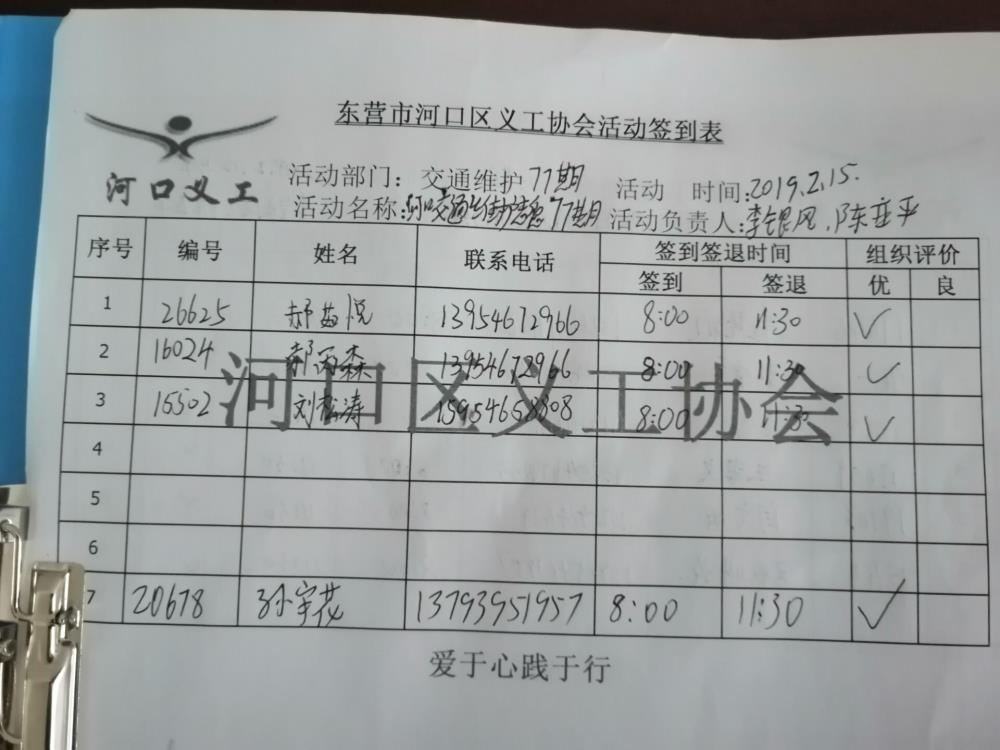 东营市河口区义工协会活动签到表
河口义工
活动部门：交通维护77期 活动 时间:2019.2.15.
活动名称:河口交通 77期 活动负责人:李银风.陈
序号 编号 姓名 联系电话 签到签退时间 组织评价
签到 签退 优 良
1 26625 郝 悦 13954672966 8:00 11:30 √
2 16024 郝雨森 13954672966 8:00 11:30 √
3 15502 刘松涛 15954658808 8:00 11:30 √
河口区义工协会
4
5
6
7 20678 孙宇花 13793951957 8:00 11:30 √
爱于心践于行